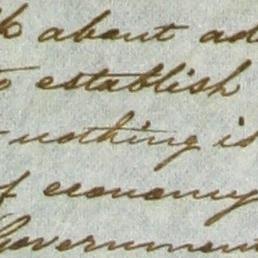 about ad
establish
nothing is
of economy
Government